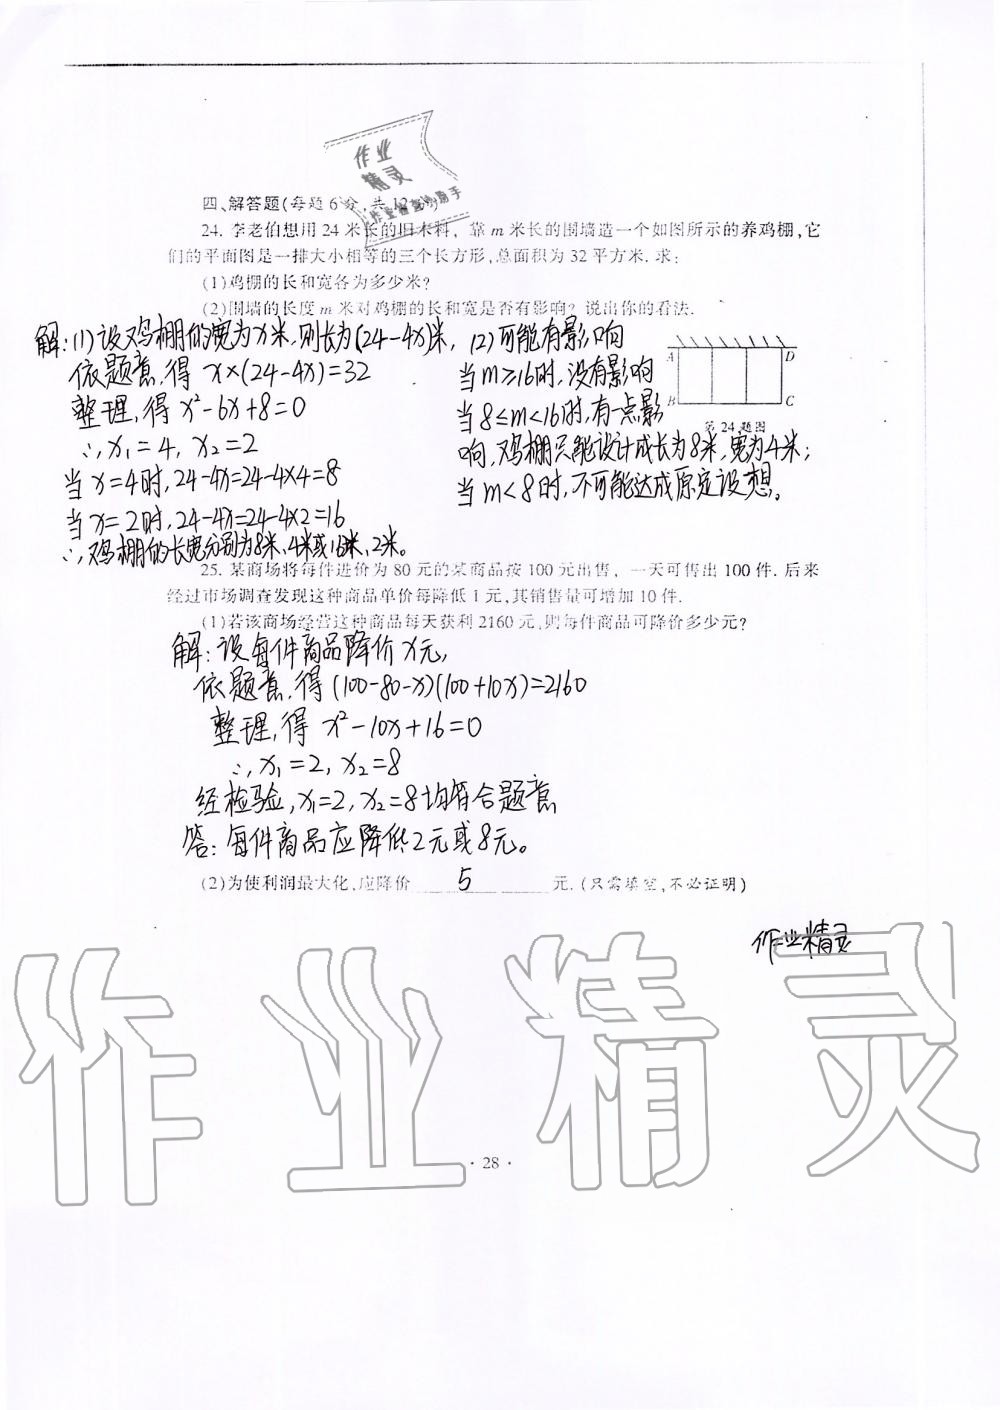 作业
精灵
四、解答题(每题6分,共12分)
24. 李老伯想用24米长的旧木料，靠m米长的围墙造一个如图所示的养鸡棚,它
们的平面图是一排大小相等的三个长方形,总面积为32平方米.求:
(1)鸡棚的长和宽各为多少米?
(2)围墙的长度m米对鸡棚的长和宽是否有影响? 说出你的看法.
解:(1)设鸡棚的宽为x米,则长为(24-4x)米,
依题意,得 x×(24-4x)=32
整理,得 x²-6x+8=0
∴x₁=4, x₂=2
当x=4时,24-4x=24-4×4=8
当x=2时,24-4x=24-4×2=16
∴鸡棚的长宽分别为8米、4米或16米、2米。
(2)可能有影响
当m≥16时,没有影响
当8≤m<16时,有一点影
响,鸡棚只能设计成长为8米,宽为4米;
当m<8时,不可能达成原定设想。
A D
B C
第24题图
25. 某商场将每件进价为80元的某商品按100元出售，一天可售出100件.后来
经过市场调查发现这种商品单价每降低1元,其销售量可增加10件.
(1)若该商场经营这种商品每天获利2160元,则每件商品可降价多少元?
解:设每件商品降价x元,
依题意,得(100-80-x)(100+10x)=2160
整理,得 x²-10x+16=0
∴x₁=2, x₂=8
经检验,x₁=2, x₂=8均符合题意
答:每件商品应降低2元或8元。
(2)为使利润最大化,应降价 5 元.(只需填空,不必证明)
作业精灵
作业精灵
· 28 ·